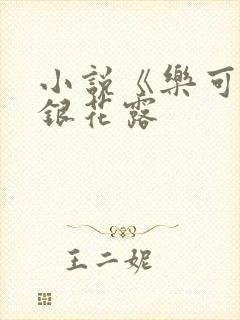 小說《樂可
銀花露
王二妮